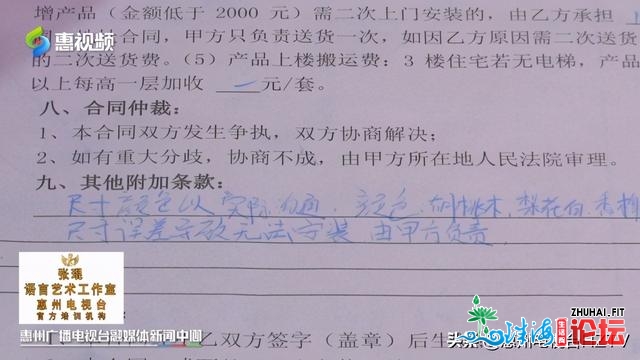 惠视频
增产品（金额低于 2000 元）需二次上门安装的，由乙方承担
合同，甲方只负责送货一次，如因乙方原因需二次送货
的二次送货费。（5）产品上楼搬运费：3 楼住宅若无电梯，产品
以上每高一层加收 一 元/套。
八、合同仲裁：
1、本合同双方发生争执，双方协商解决；
2、如有重大分歧，协商不成，由甲方所在地人民法院审理。
九、其他附加条款：
尺寸颜色以实际沟通. 颜色:胡桃木,梨花白,香樟
尺寸误差导致无法安装 由甲方负责
张琨
语言艺术工作室
惠州电视台
官方培训机构
ZHUHAI.FIT
珠海
生活网
论坛
惠州广播电视台融媒体新闻中心
乙双方签字（盖章）后生
头条